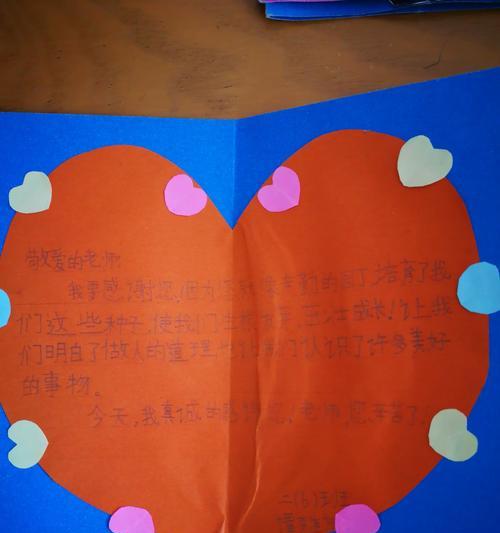 敬爱的老师:
我要感谢您,因为您就像辛勤的园丁,培育了我
们这些种子,使我们生根发芽,茁壮成长!让我
们明白了做人的道理,也让我们认识了许多美好
的事物。
今天,我真诚的感谢您!老师,您辛苦了。
二(6)班